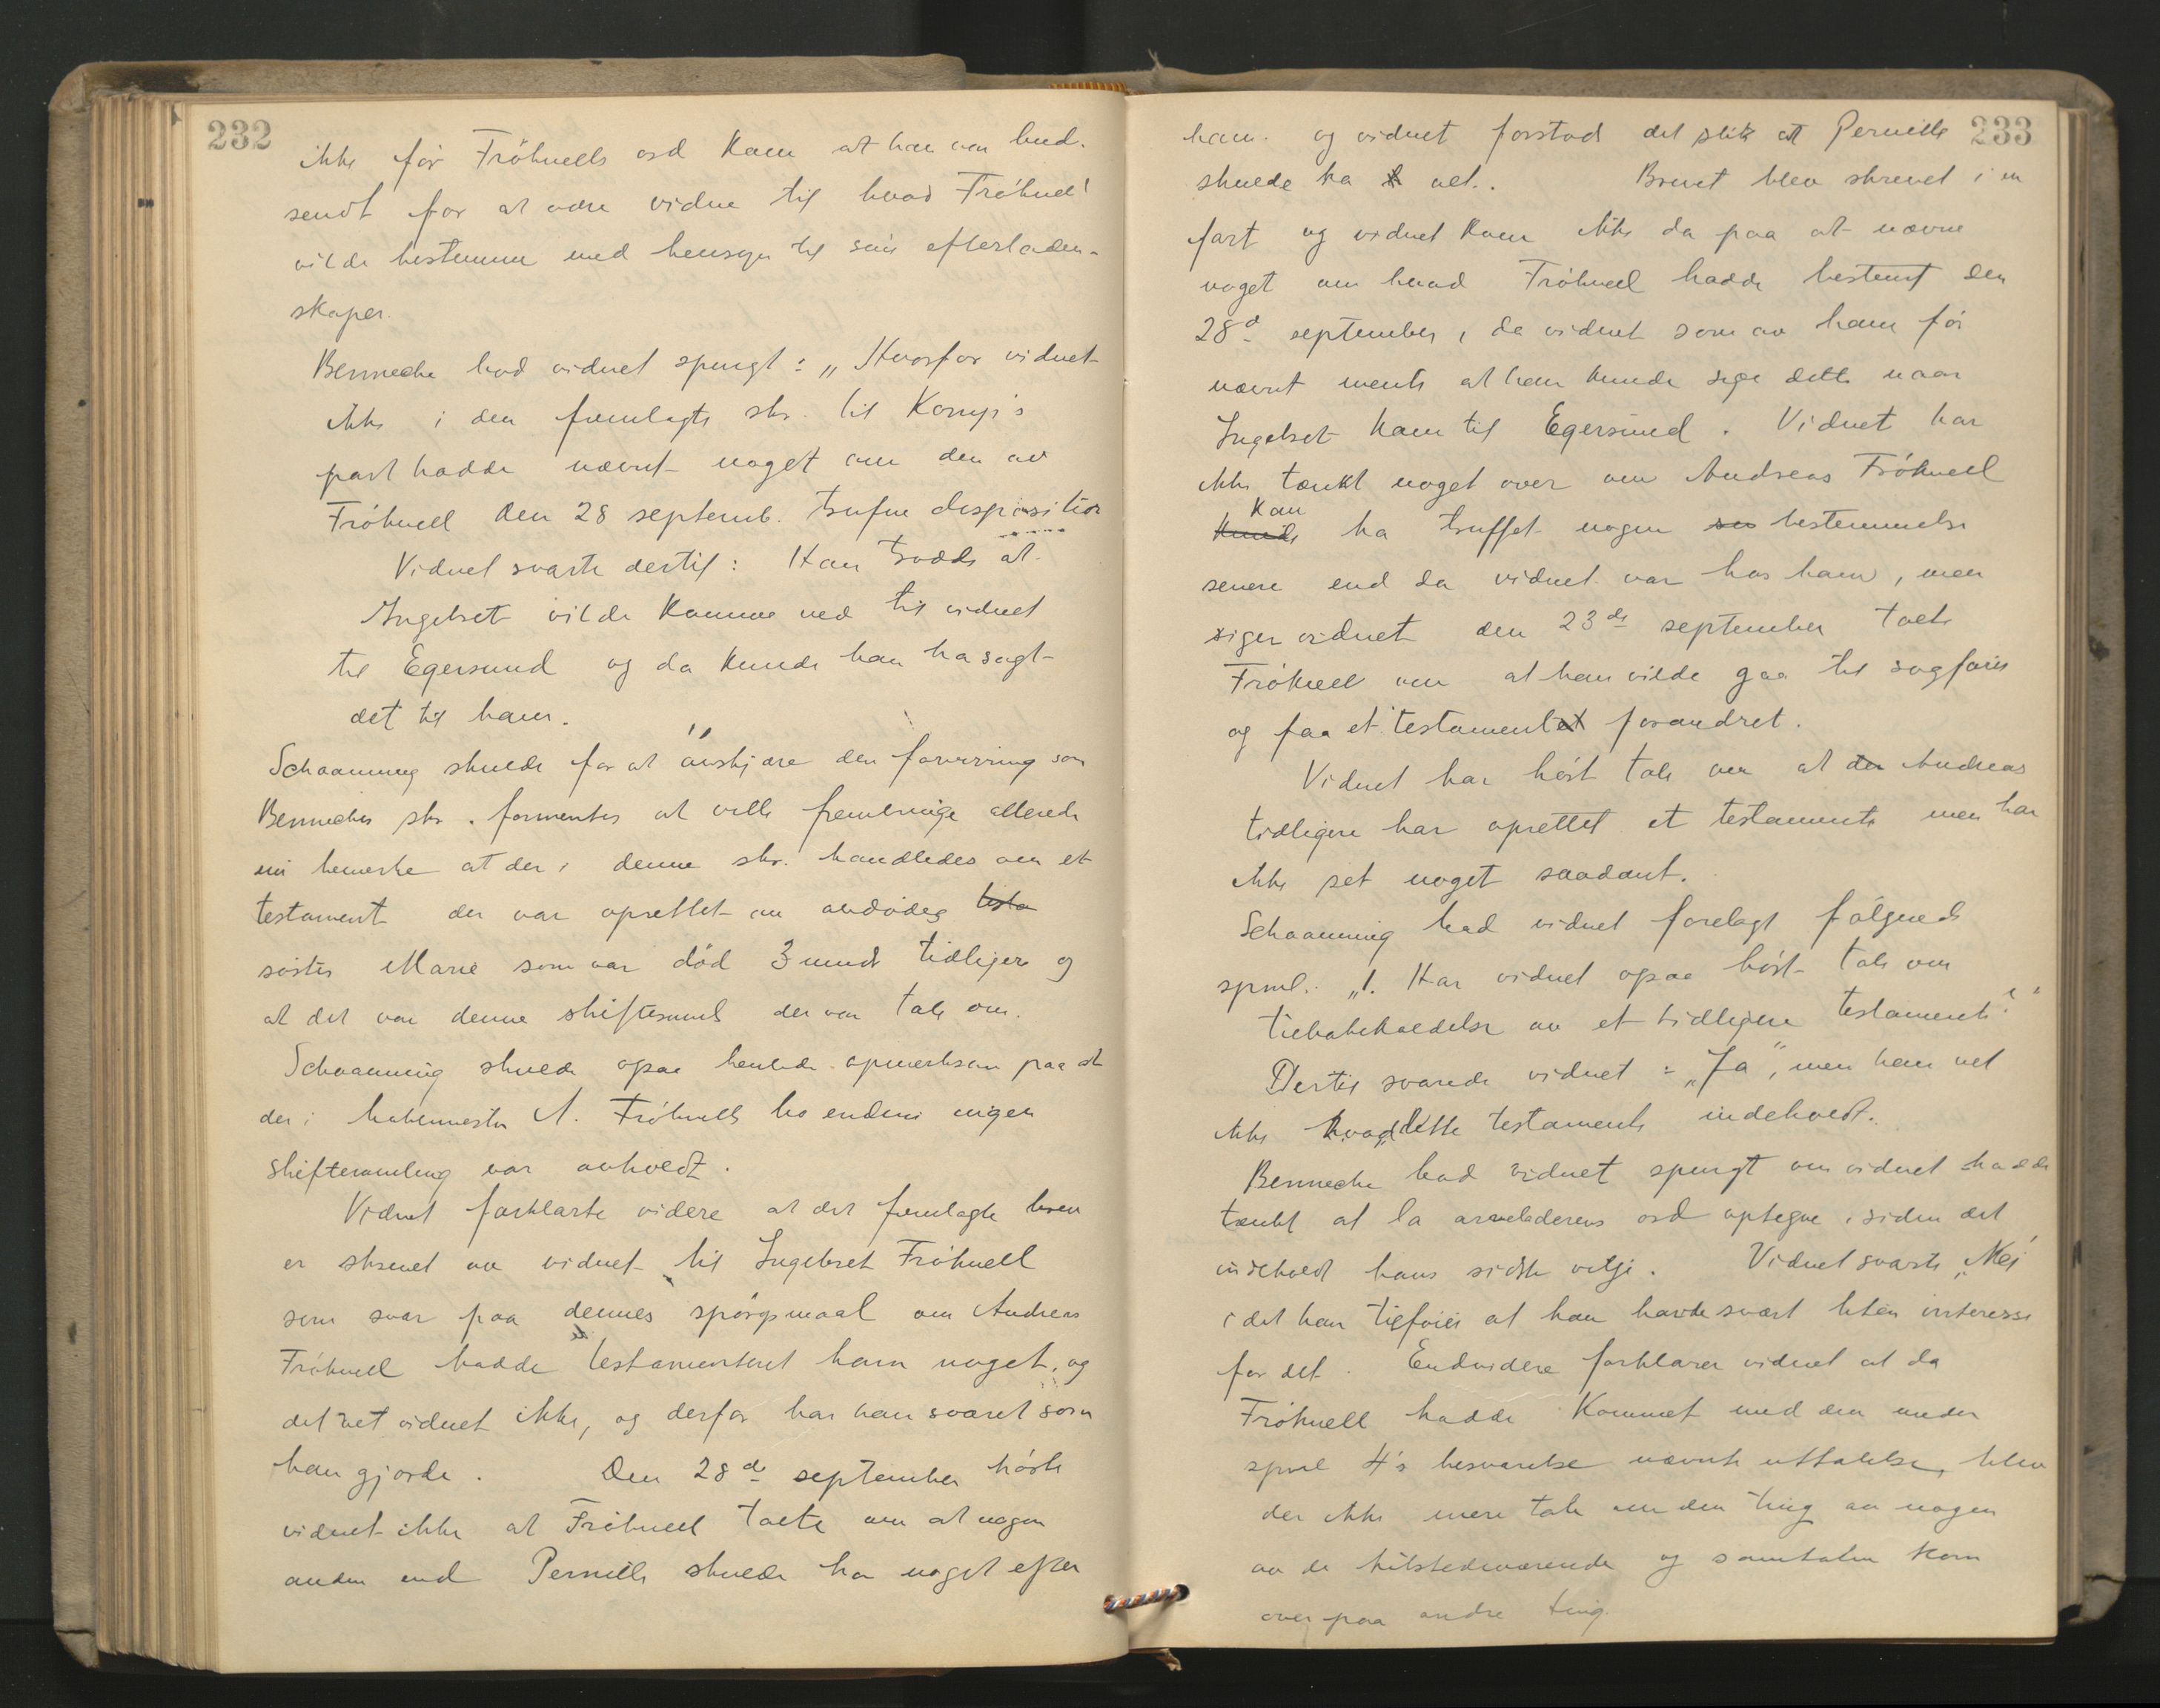 232
ikke før Fröhnells ord kom at han var bud-
sendt for at være vidne til hvad Fröhnell
vilde bestemme med hensyn til sine efterladen-
skaper.
Bennecke bad vidnet spurgt: „Hvorfor vidnet
ikke i den fremlagte skr. til
part hadde nævnt noget om den av
Fröhnell den 28 septemb. trufne disposition
Vidnet svarte dertil: Han trodde at
Ingebret vilde komme ned til vidnet
til Egersund og da kunde han ha sagt
det til ham.
Schaanning skulde for at avskjære den forvirring som
Benneckes skr. formentes at ville frembringe allerede
nu bemerke at der i denne skr. handledes om et
testament der var oprettet av avdødes testa
søster Marie som var død 3 mndr tidligere og
at det var denne skiftesaml. der var tale om.
Schaanning skulde ogsaa henlede opmerksom paa at
der i A. Fröhnells bo endnu ingen
skiftesamling var avholdt.
Vidnet forklarte videre at det fremlagte brev
er skrevet av vidnet til Ingebret Fröhnell
som svar paa dennes spörgsmaal om Andreas
Fröhnell hadde testamenteret ham noget, og
det vet vidnet ikke, og derfor har han svaret som
han gjorde. Den 28de september hørte
vidnet ikke at Fröhnell talte om at nogen
anden end Pernille skulde ha noget efter
233
ham. og vidnet forstod det slik at Pernille
skulde ha alt. Brevet blev skrevet i en
fart og vidnet kom ikke da paa at nævne
noget om hvad Fröhnell hadde bestemt den
28d september, da vidnet som av ham før
nævnt mente at han kunde sige dette naar
Ingebret kom til Egersund. Vidnet har
ikke tænkt noget over om Andreas Fröhnell
kan
kunde ha truffet nogen bestemmelse
senere end da vidnet var hos ham, men
siger vidnet den 23de september talte
Fröhnell om at han vilde gaa til sagfører
og faa et testament forandret.
Vidnet har hört tale om at der Andreas
tidligere har oprettet et testamente men har
ikke set noget saadant.
Schaanning bad vidnet forelagt fölgende
spml.: „1. Har vidnet ogsaa hört tale om
tilbakekaldelse av et tidligere testamente?"
Dertil svarede vidnet: „Ja", men han vet
ikke hvad dette testamente indeholdt.
Bennecke bad vidnet spurgt om vidnet hadde
tænkt at la arveladerens ord optegne, siden det
indeholdt hans sidste vilje. Vidnet svarte „Nei"
idet han tilføier at han havde svært liten interesse
for det. Endvidere forklarer vidnet at da
Fröhnell hadde kommet med den under
spml 4's besvarelse nævnte uttalelse, blev
der ikke mere tale om den ting av nogen
av de tilstedeværende og samtalen kom
over paa andre ting.